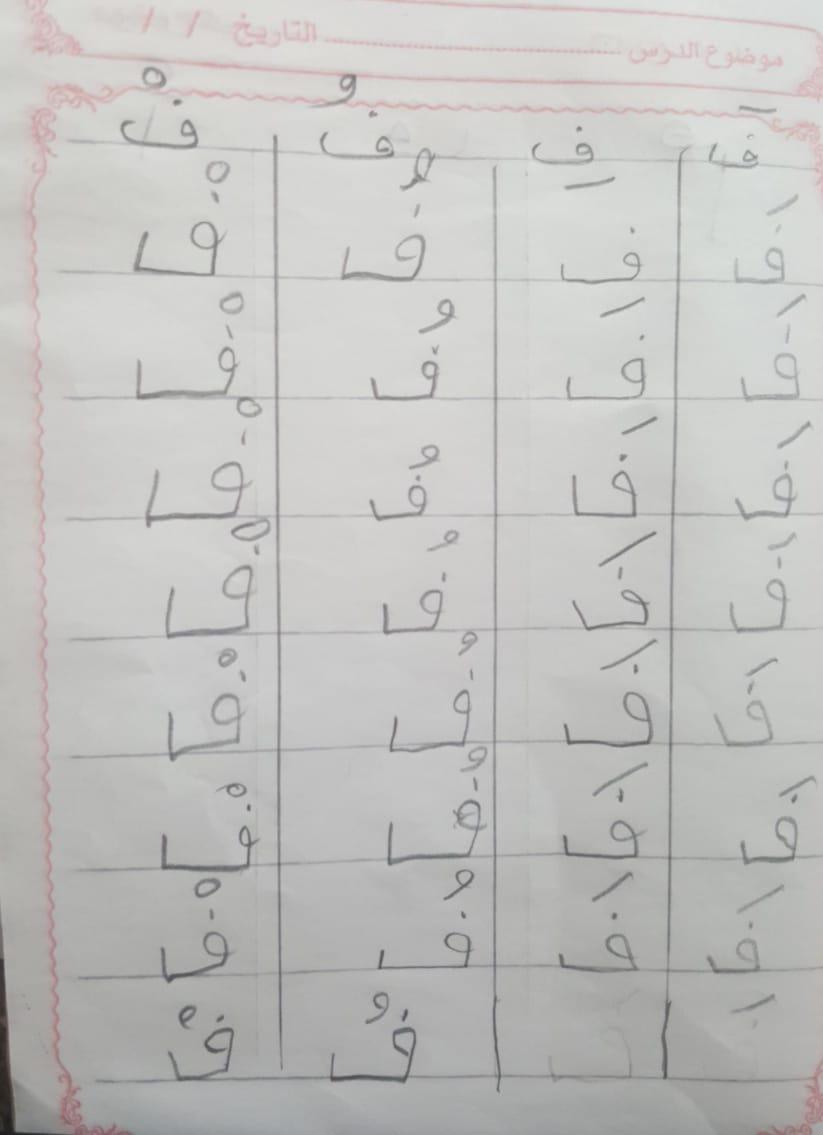 موضوع الدرس ........................ التاريخ / /
فَ فِ فُ فْ
فَ فَ فُ فْ
فَ فَ فُ فْ
فَ فَ فُ فْ
فَ فَ فُ فْ
فَ فَ فُ فْ
فَ فَ فُ فْ
فَ فَ فُ فْ
فُ فْ